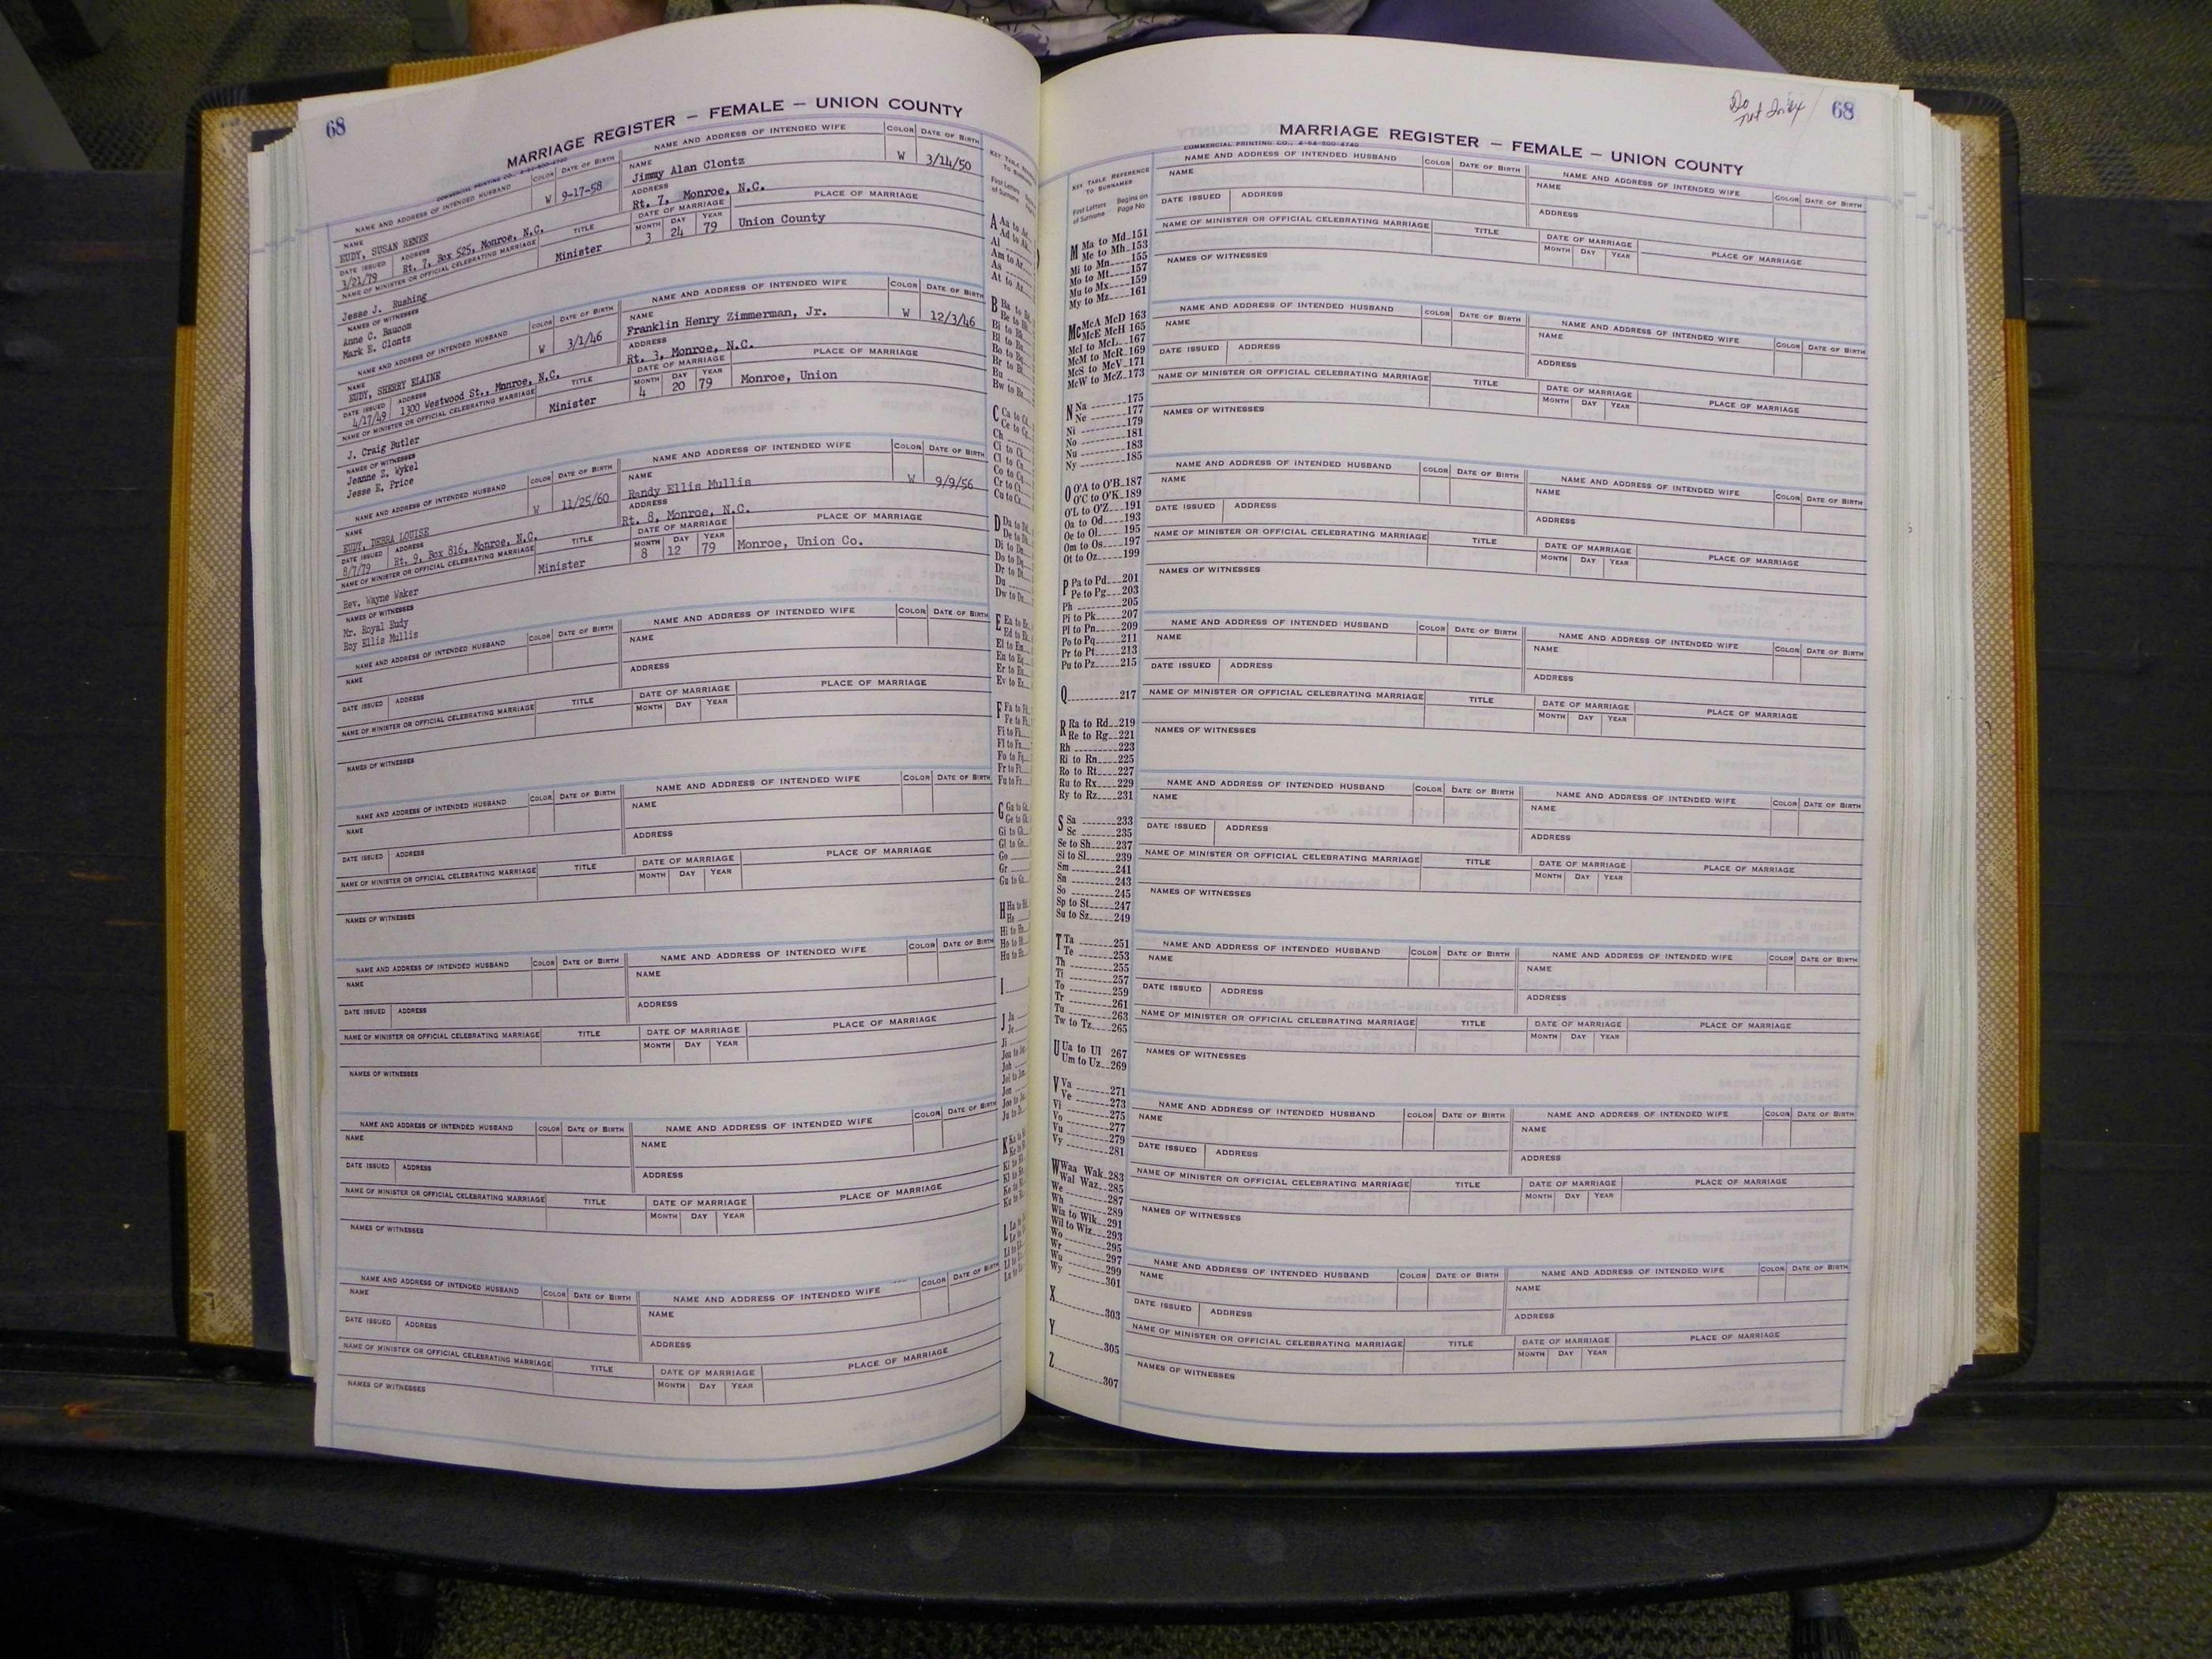 68
MARRIAGE REGISTER — FEMALE — UNION COUNTY
NAME AND ADDRESS OF INTENDED HUSBAND COLOR DATE OF BIRTH NAME AND ADDRESS OF INTENDED WIFE COLOR DATE OF BIRTH
NAME
EUDY, SUSAN RENEE W 9-17-58
NAME
Jimmy Alan Clontz W 3/14/50
DATE ISSUED ADDRESS
3/21/79 Rt. 7, Box 525, Monroe, N.C.
ADDRESS
Rt. 7, Monroe, N.C.
NAME OF MINISTER OR OFFICIAL CELEBRATING MARRIAGE TITLE DATE OF MARRIAGE PLACE OF MARRIAGE
MONTH DAY YEAR
Jesse J. Rushing Minister 3 24 79 Union County
NAMES OF WITNESSES
Anne C. Baucom
Mark E. Clontz
NAME AND ADDRESS OF INTENDED HUSBAND COLOR DATE OF BIRTH NAME AND ADDRESS OF INTENDED WIFE COLOR DATE OF BIRTH
NAME
EUDY, SHERRY ELAINE W 3/1/46
NAME
Franklin Henry Zimmerman, Jr. W 12/3/46
DATE ISSUED ADDRESS
4/17/49 1300 Westwood St., Monroe, N.C.
ADDRESS
Rt. 3, Monroe, N.C.
NAME OF MINISTER OR OFFICIAL CELEBRATING MARRIAGE TITLE DATE OF MARRIAGE PLACE OF MARRIAGE
MONTH DAY YEAR
J. Craig Butler Minister 4 20 79 Monroe, Union
NAMES OF WITNESSES
Jeanne Z. Wykel
Jesse E. Price
NAME AND ADDRESS OF INTENDED HUSBAND COLOR DATE OF BIRTH NAME AND ADDRESS OF INTENDED WIFE COLOR DATE OF BIRTH
NAME
EUDY, DEBRA LOUISE W 11/25/60
NAME
Randy Ellis Mullis W 9/9/56
DATE ISSUED ADDRESS
8/7/79 Rt. 9, Box 816, Monroe, N.C.
ADDRESS
Rt. 8, Monroe, N.C.
NAME OF MINISTER OR OFFICIAL CELEBRATING MARRIAGE TITLE DATE OF MARRIAGE PLACE OF MARRIAGE
MONTH DAY YEAR
Rev. Wayne Waker Minister 8 12 79 Monroe, Union Co.
NAMES OF WITNESSES
Mr. Royal Eudy
Roy Ellis Mullis
NAME AND ADDRESS OF INTENDED HUSBAND COLOR DATE OF BIRTH NAME AND ADDRESS OF INTENDED WIFE COLOR DATE OF BIRTH
NAME NAME
DATE ISSUED ADDRESS ADDRESS
NAME OF MINISTER OR OFFICIAL CELEBRATING MARRIAGE TITLE DATE OF MARRIAGE PLACE OF MARRIAGE
MONTH DAY YEAR
NAMES OF WITNESSES
NAME AND ADDRESS OF INTENDED HUSBAND COLOR DATE OF BIRTH NAME AND ADDRESS OF INTENDED WIFE COLOR DATE OF BIRTH
NAME NAME
DATE ISSUED ADDRESS ADDRESS
NAME OF MINISTER OR OFFICIAL CELEBRATING MARRIAGE TITLE DATE OF MARRIAGE PLACE OF MARRIAGE
MONTH DAY YEAR
NAMES OF WITNESSES
NAME AND ADDRESS OF INTENDED HUSBAND COLOR DATE OF BIRTH NAME AND ADDRESS OF INTENDED WIFE COLOR DATE OF BIRTH
NAME NAME
DATE ISSUED ADDRESS ADDRESS
NAME OF MINISTER OR OFFICIAL CELEBRATING MARRIAGE TITLE DATE OF MARRIAGE PLACE OF MARRIAGE
MONTH DAY YEAR
NAMES OF WITNESSES
NAME AND ADDRESS OF INTENDED HUSBAND COLOR DATE OF BIRTH NAME AND ADDRESS OF INTENDED WIFE COLOR DATE OF BIRTH
NAME NAME
DATE ISSUED ADDRESS ADDRESS
NAME OF MINISTER OR OFFICIAL CELEBRATING MARRIAGE TITLE DATE OF MARRIAGE PLACE OF MARRIAGE
MONTH DAY YEAR
NAMES OF WITNESSES
NAME AND ADDRESS OF INTENDED HUSBAND COLOR DATE OF BIRTH NAME AND ADDRESS OF INTENDED WIFE COLOR DATE OF BIRTH
NAME NAME
DATE ISSUED ADDRESS ADDRESS
NAME OF MINISTER OR OFFICIAL CELEBRATING MARRIAGE TITLE DATE OF MARRIAGE PLACE OF MARRIAGE
MONTH DAY YEAR
NAMES OF WITNESSES
Do
not Index 68
MARRIAGE REGISTER — FEMALE — UNION COUNTY
COMMERCIAL PRINTING CO.
KEY TABLE REFERENCE
TO SURNAMES
First Letters of Surname Begins on Page No
M Ma to Md 151
Me to Mh 153
Mi to Mn 155
Mo to Mt 157
Mu to Mx 159
My to Mz 161
Mc McA McD 163
McE McH 165
McI to McL 167
McM to McR 169
McS to McV 171
McW to McZ 173
N Na 175
Ne 177
Ni 179
No 181
Nu 183
Ny 185
O O'A to O'B 187
O'C to O'K 189
O'L to O'Z 191
Oa to Od 193
Oe to Ol 195
Om to Os 197
Ot to Oz 199
P Pa to Pd 201
Pe to Pg 203
Ph 205
Pi to Pk 207
Pl to Pn 209
Po to Pq 211
Pr to Pt 213
Pu to Pz 215
Q 217
R Ra to Rd 219
Re to Rg 221
Rh 223
Ri to Rn 225
Ro to Rt 227
Ru to Rx 229
Ry to Rz 231
S Sa 233
Sc 235
Se to Sh 237
Si to Sl 239
Sm 241
Sn 243
So 245
Sp to St 247
Su to Sz 249
T Ta 251
Te 253
Th 255
Ti 257
To 259
Tr 261
Tu 263
Tw to Tz 265
U Ua to Ul 267
Um to Uz 269
V Va 271
Ve 273
Vi 275
Vo 277
Vu 279
Vy 281
W Waa Wak 283
Wal Waz 285
We 287
Wh 289
Wia to Wik 291
Wil to Wiz 293
Wo 295
Wr 297
Wu 299
Wy 301
X 303
Y 305
Z 307
NAME AND ADDRESS OF INTENDED HUSBAND COLOR DATE OF BIRTH NAME AND ADDRESS OF INTENDED WIFE COLOR DATE OF BIRTH
NAME NAME
DATE ISSUED ADDRESS ADDRESS
NAME OF MINISTER OR OFFICIAL CELEBRATING MARRIAGE TITLE DATE OF MARRIAGE PLACE OF MARRIAGE
MONTH DAY YEAR
NAMES OF WITNESSES
NAME AND ADDRESS OF INTENDED HUSBAND COLOR DATE OF BIRTH NAME AND ADDRESS OF INTENDED WIFE COLOR DATE OF BIRTH
NAME NAME
DATE ISSUED ADDRESS ADDRESS
NAME OF MINISTER OR OFFICIAL CELEBRATING MARRIAGE TITLE DATE OF MARRIAGE PLACE OF MARRIAGE
MONTH DAY YEAR
NAMES OF WITNESSES
NAME AND ADDRESS OF INTENDED HUSBAND COLOR DATE OF BIRTH NAME AND ADDRESS OF INTENDED WIFE COLOR DATE OF BIRTH
NAME NAME
DATE ISSUED ADDRESS ADDRESS
NAME OF MINISTER OR OFFICIAL CELEBRATING MARRIAGE TITLE DATE OF MARRIAGE PLACE OF MARRIAGE
MONTH DAY YEAR
NAMES OF WITNESSES
NAME AND ADDRESS OF INTENDED HUSBAND COLOR DATE OF BIRTH NAME AND ADDRESS OF INTENDED WIFE COLOR DATE OF BIRTH
NAME NAME
DATE ISSUED ADDRESS ADDRESS
NAME OF MINISTER OR OFFICIAL CELEBRATING MARRIAGE TITLE DATE OF MARRIAGE PLACE OF MARRIAGE
MONTH DAY YEAR
NAMES OF WITNESSES
NAME AND ADDRESS OF INTENDED HUSBAND COLOR DATE OF BIRTH NAME AND ADDRESS OF INTENDED WIFE COLOR DATE OF BIRTH
NAME NAME
DATE ISSUED ADDRESS ADDRESS
NAME OF MINISTER OR OFFICIAL CELEBRATING MARRIAGE TITLE DATE OF MARRIAGE PLACE OF MARRIAGE
MONTH DAY YEAR
NAMES OF WITNESSES
NAME AND ADDRESS OF INTENDED HUSBAND COLOR DATE OF BIRTH NAME AND ADDRESS OF INTENDED WIFE COLOR DATE OF BIRTH
NAME NAME
DATE ISSUED ADDRESS ADDRESS
NAME OF MINISTER OR OFFICIAL CELEBRATING MARRIAGE TITLE DATE OF MARRIAGE PLACE OF MARRIAGE
MONTH DAY YEAR
NAMES OF WITNESSES
NAME AND ADDRESS OF INTENDED HUSBAND COLOR DATE OF BIRTH NAME AND ADDRESS OF INTENDED WIFE COLOR DATE OF BIRTH
NAME NAME
DATE ISSUED ADDRESS ADDRESS
NAME OF MINISTER OR OFFICIAL CELEBRATING MARRIAGE TITLE DATE OF MARRIAGE PLACE OF MARRIAGE
MONTH DAY YEAR
NAMES OF WITNESSES
NAME AND ADDRESS OF INTENDED HUSBAND COLOR DATE OF BIRTH NAME AND ADDRESS OF INTENDED WIFE COLOR DATE OF BIRTH
NAME NAME
DATE ISSUED ADDRESS ADDRESS
NAME OF MINISTER OR OFFICIAL CELEBRATING MARRIAGE TITLE DATE OF MARRIAGE PLACE OF MARRIAGE
MONTH DAY YEAR
NAMES OF WITNESSES